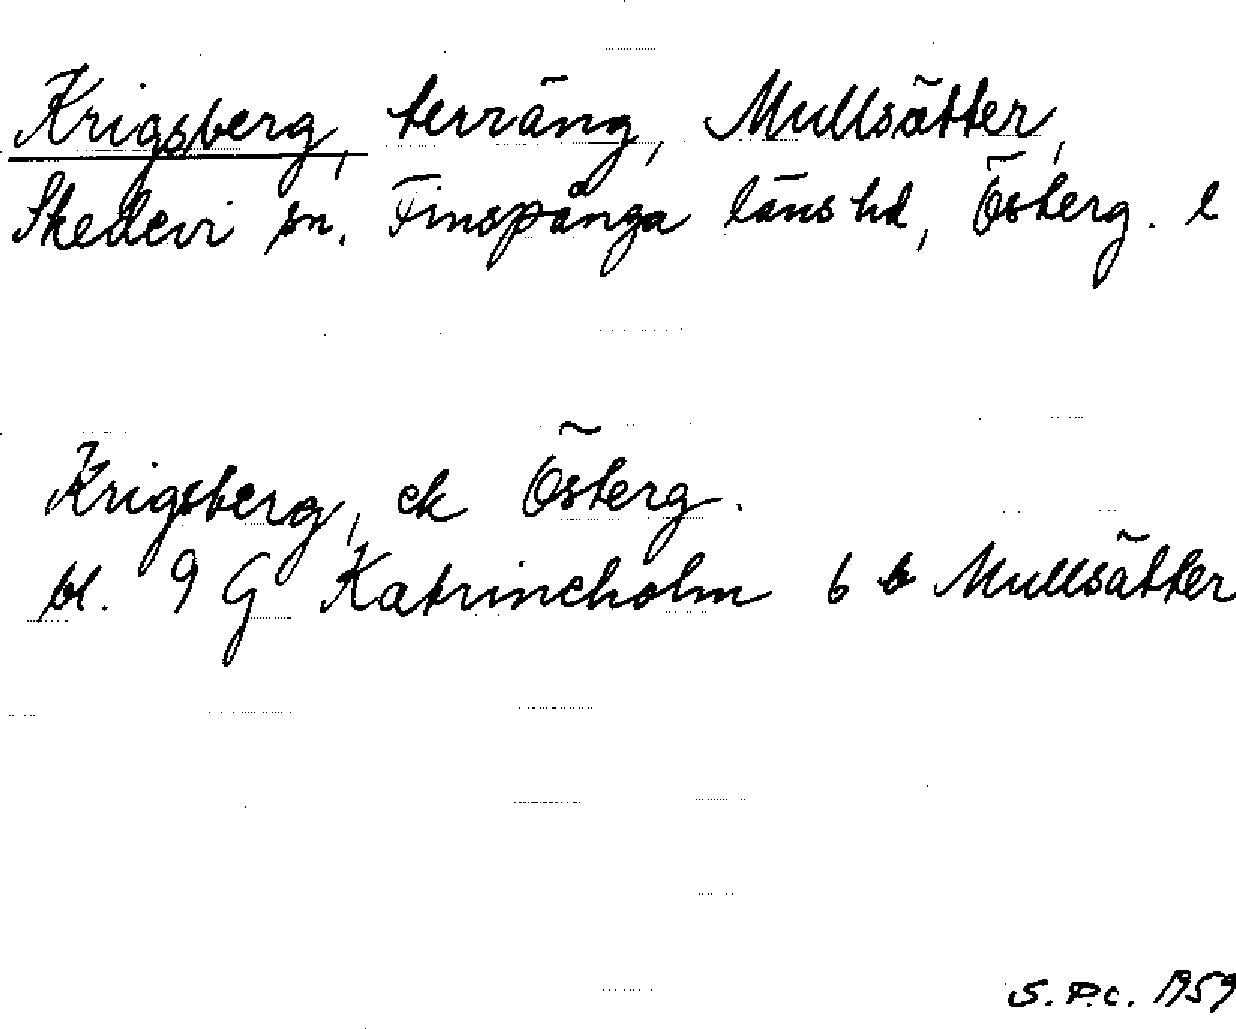 Krigsberg, terräng, Mullsätter,
Skedevi sn. Finspånga läns hd, Österg. l
Krigsberg, ek Österg.
bl. 9 G Katrineholm 6 b Mullsätter
S.P.C. 1959